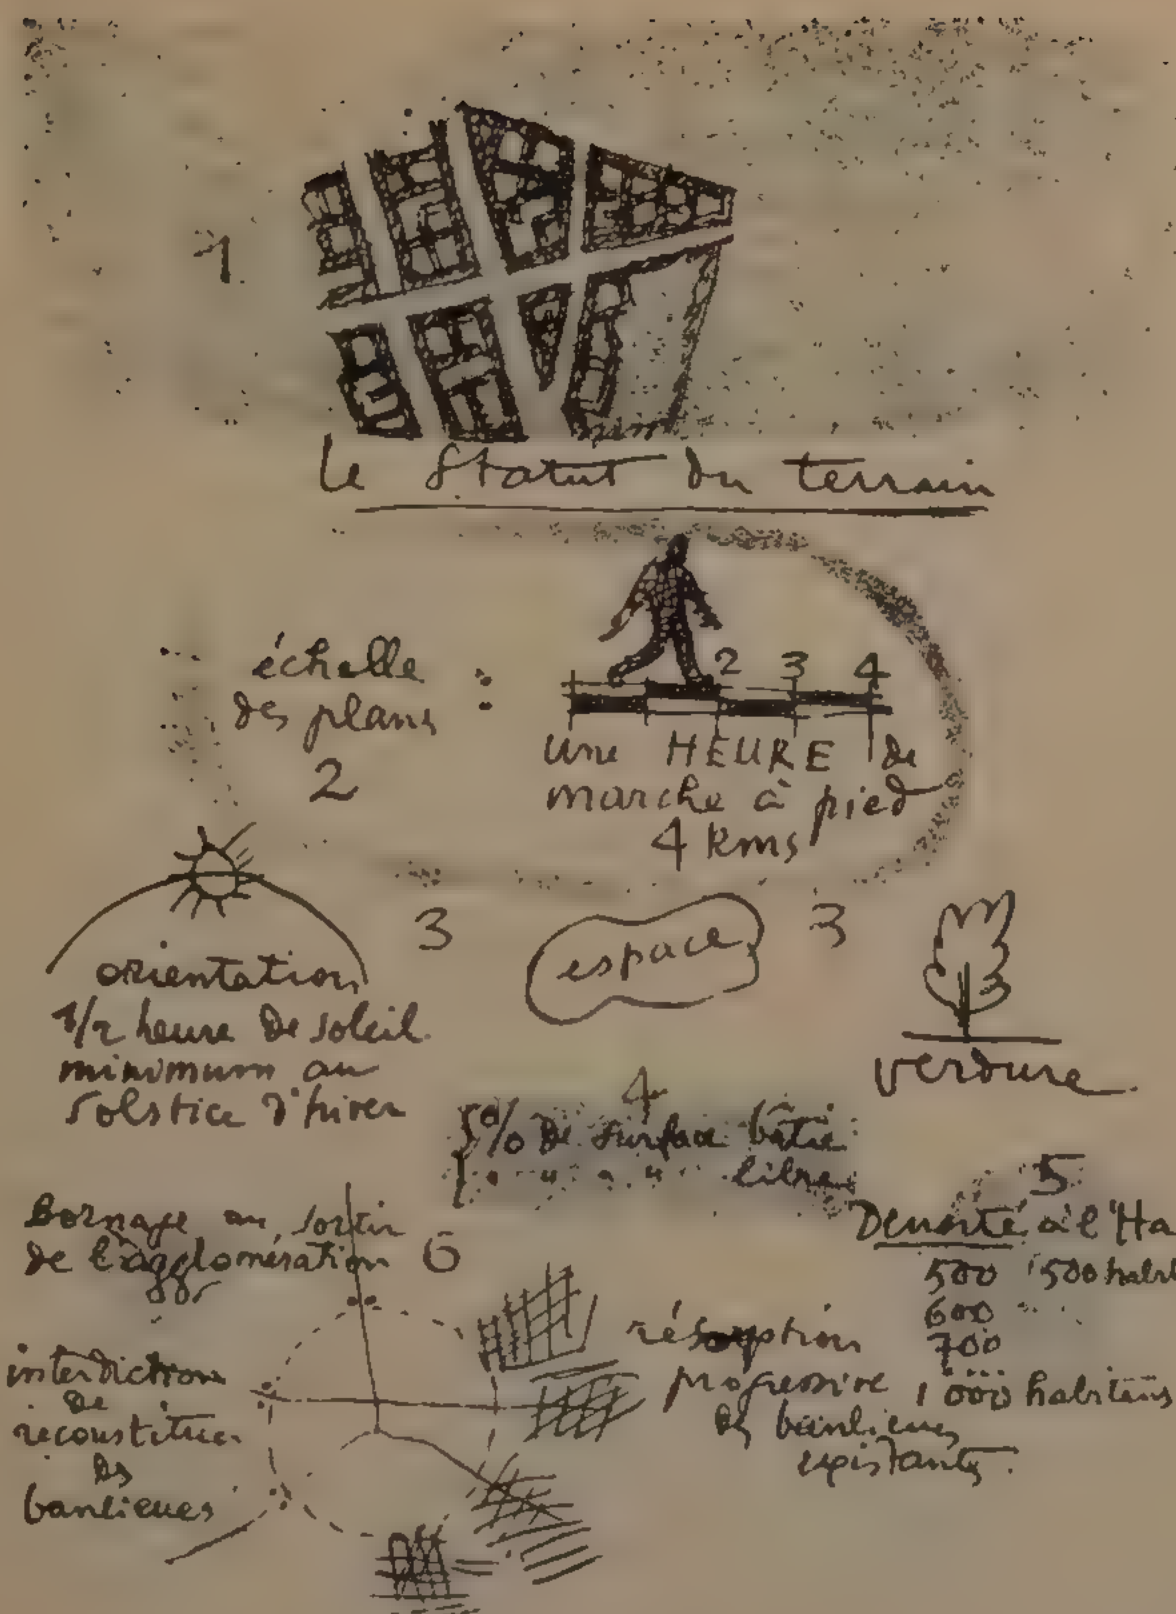 1
le statut du terrain
échelle
des plans :
2
2 3 4
une HEURE de
marche à pied
4 kms
3
orientation
1/2 heure de soleil
minimum au
solstice d'hiver
espace
3
verdure
4
5% de surface bâtie
libre
5
Densité à l'Ha
500 500 habit
600
700
1000 habitants
6
Bornage au sortir
de l'agglomération
interdiction
de
reconstituer
des
banlieues
résorption
progressive
des banlieues
existantes.